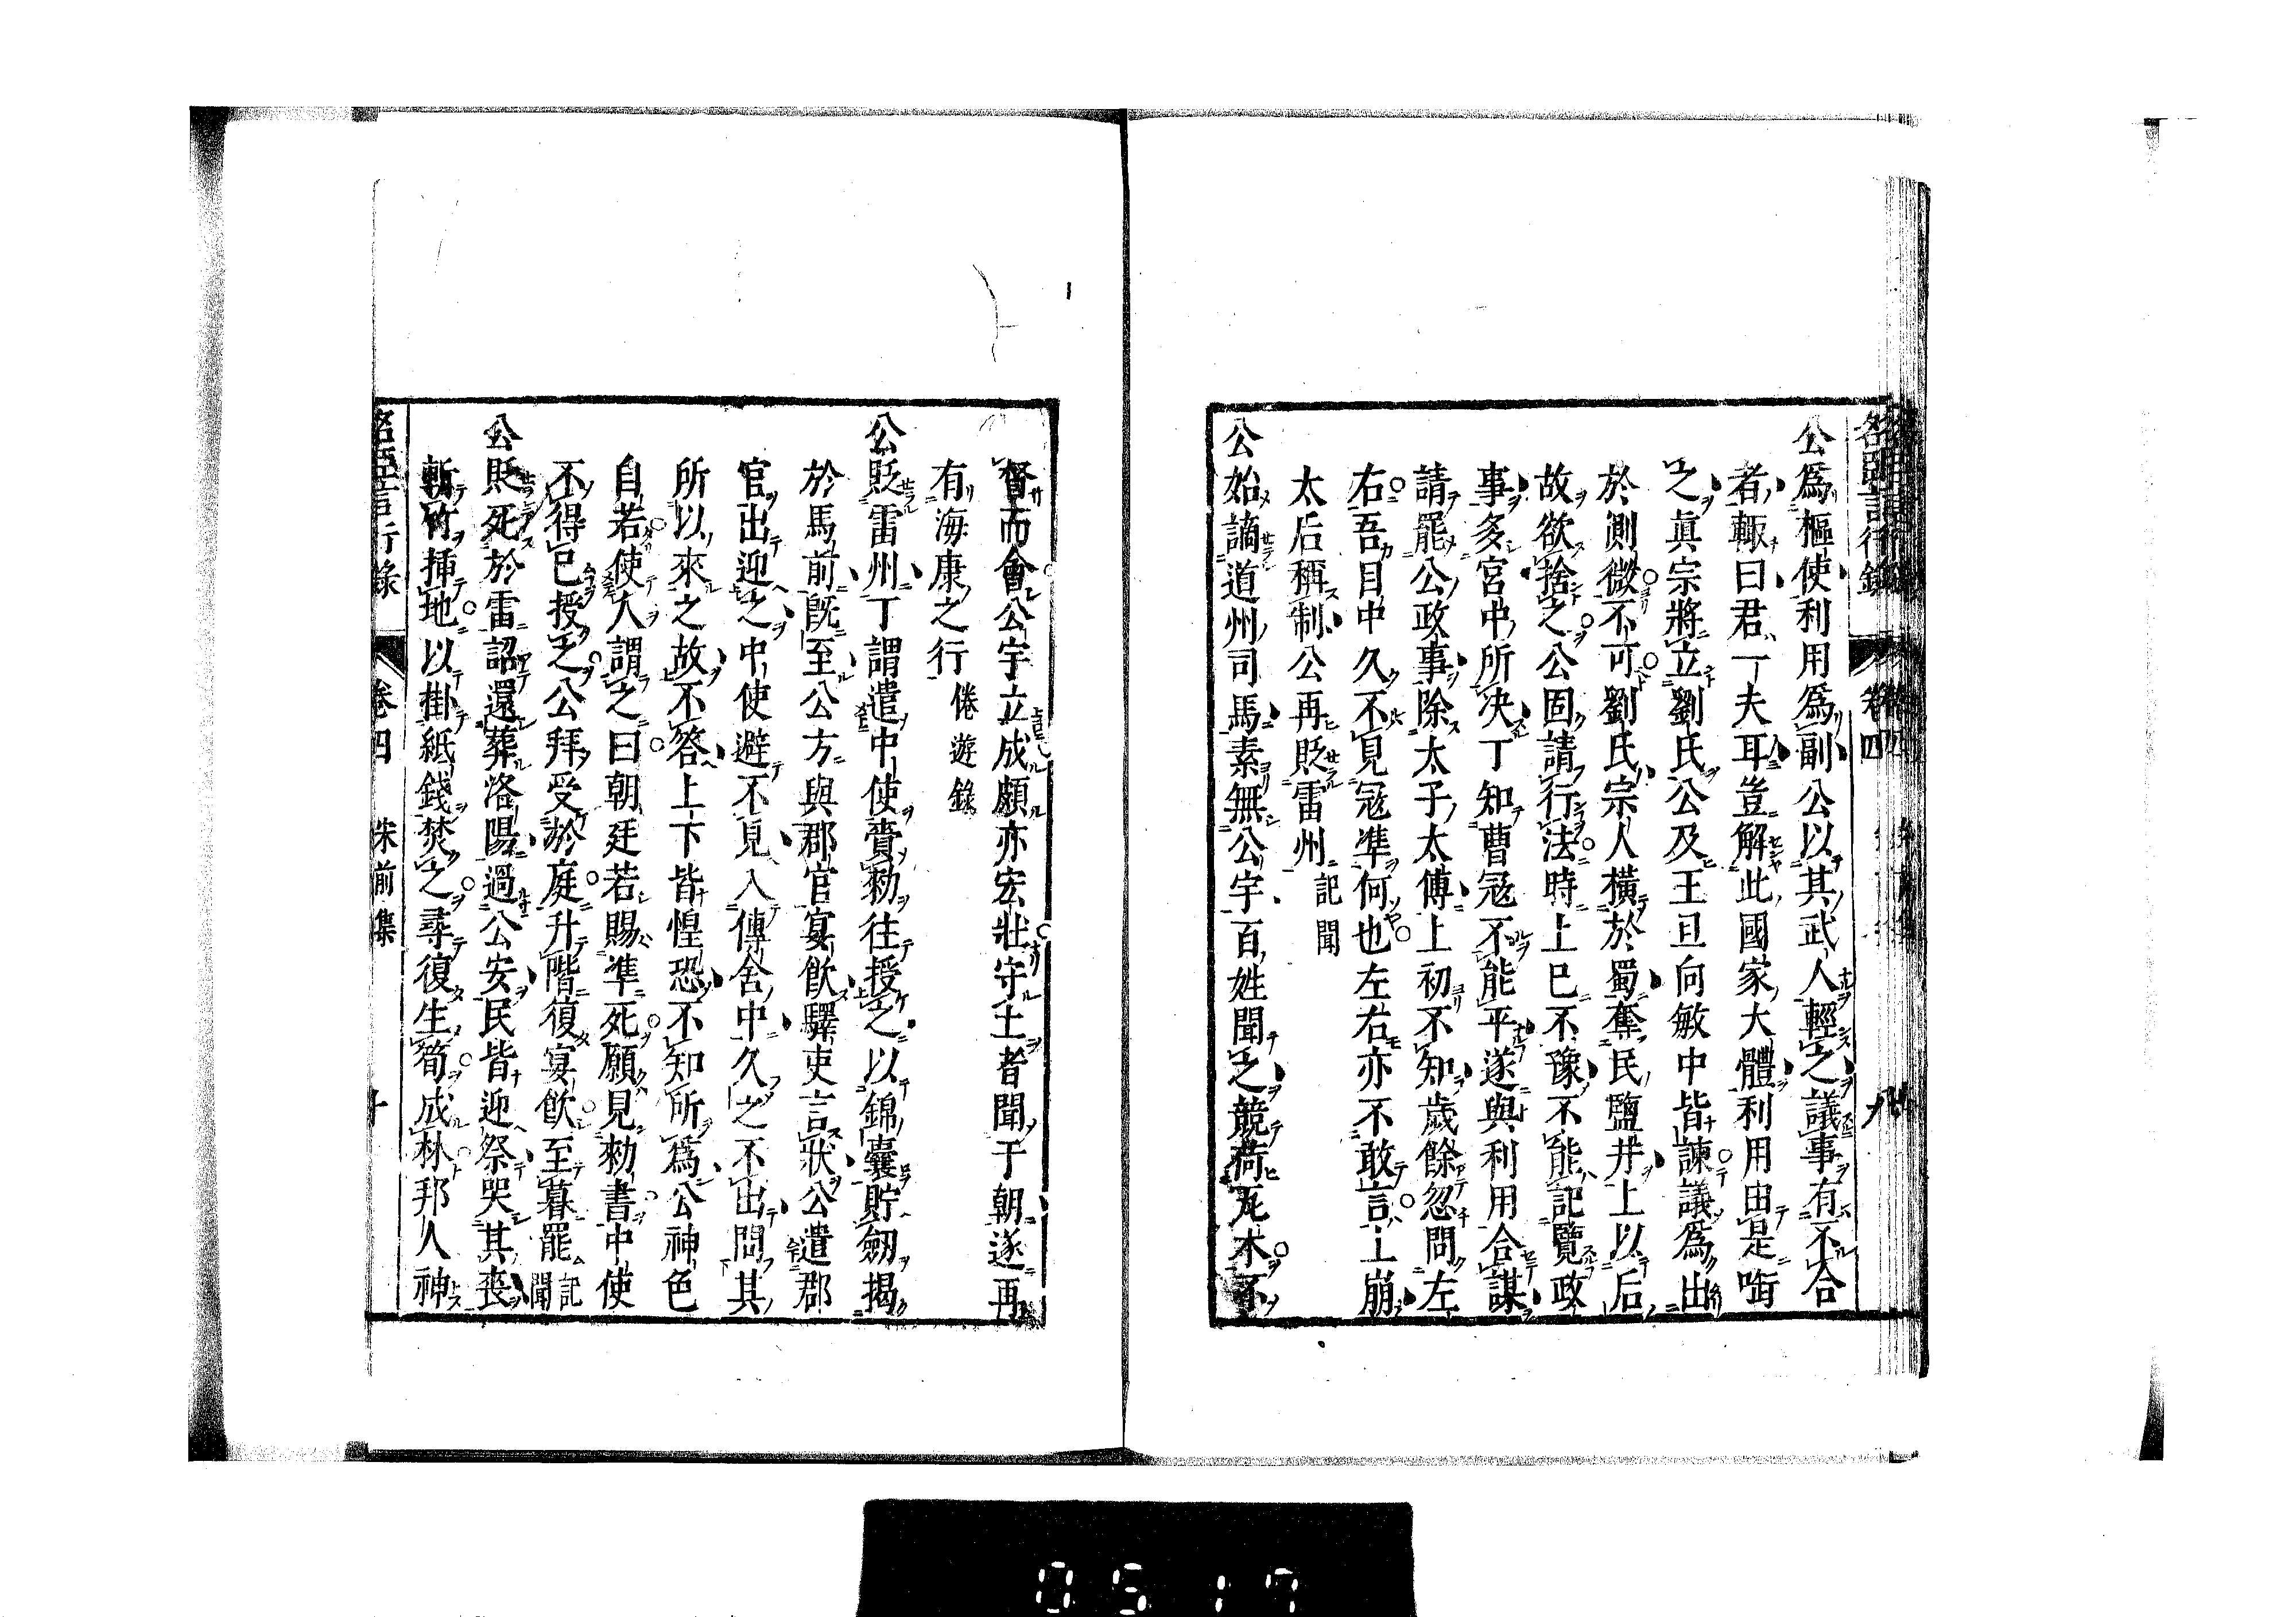 名臣言行錄 卷四 九
公爲樞使利用爲副公以其武人輕之議事有不合
者輙曰君一夫耳豈解此國家大體利用由是啣
之眞宗將立劉氏公及王旦向敏中皆諫議爲出
於側微不可劉氏宗人橫於蜀奪民鹽井上以后
故欲捨之公固請行法時上已不豫不能記覽政
事多宮中所决丁知曹冦不能平遂與利用合謀
請罷公政事除太子太傅上初不知歲餘忽問左
右吾目中久不見冦準何也左右亦不敢言上崩
太后稱制公再貶雷州 記聞
公始謫道州司馬素無公宇百姓聞之競荷瓦木不
督而會公宇立成頗亦宏壯守土者聞于朝遂再
有海康之行 倦遊錄
公貶雷州丁謂遣中使賫勑往授之以錦囊貯劒揭
於馬前既至公方與郡官宴飮驛吏言狀公遣郡
官出迎之中使避不見入傳舍中久之不出問其
所以來之故不答上下皆惶恐不知所爲公神色
自若使人謂之曰朝廷若賜準死願見勑書中使
不得已授之公拜受於庭升階復宴飮至暮罷 記聞
公貶死於雷詔還葬洛陽過公安民皆迎祭哭其喪
斬竹插地以掛紙錢焚之尋復生筍成林邦人神
名臣言行錄 卷四 朱前集 十
0517